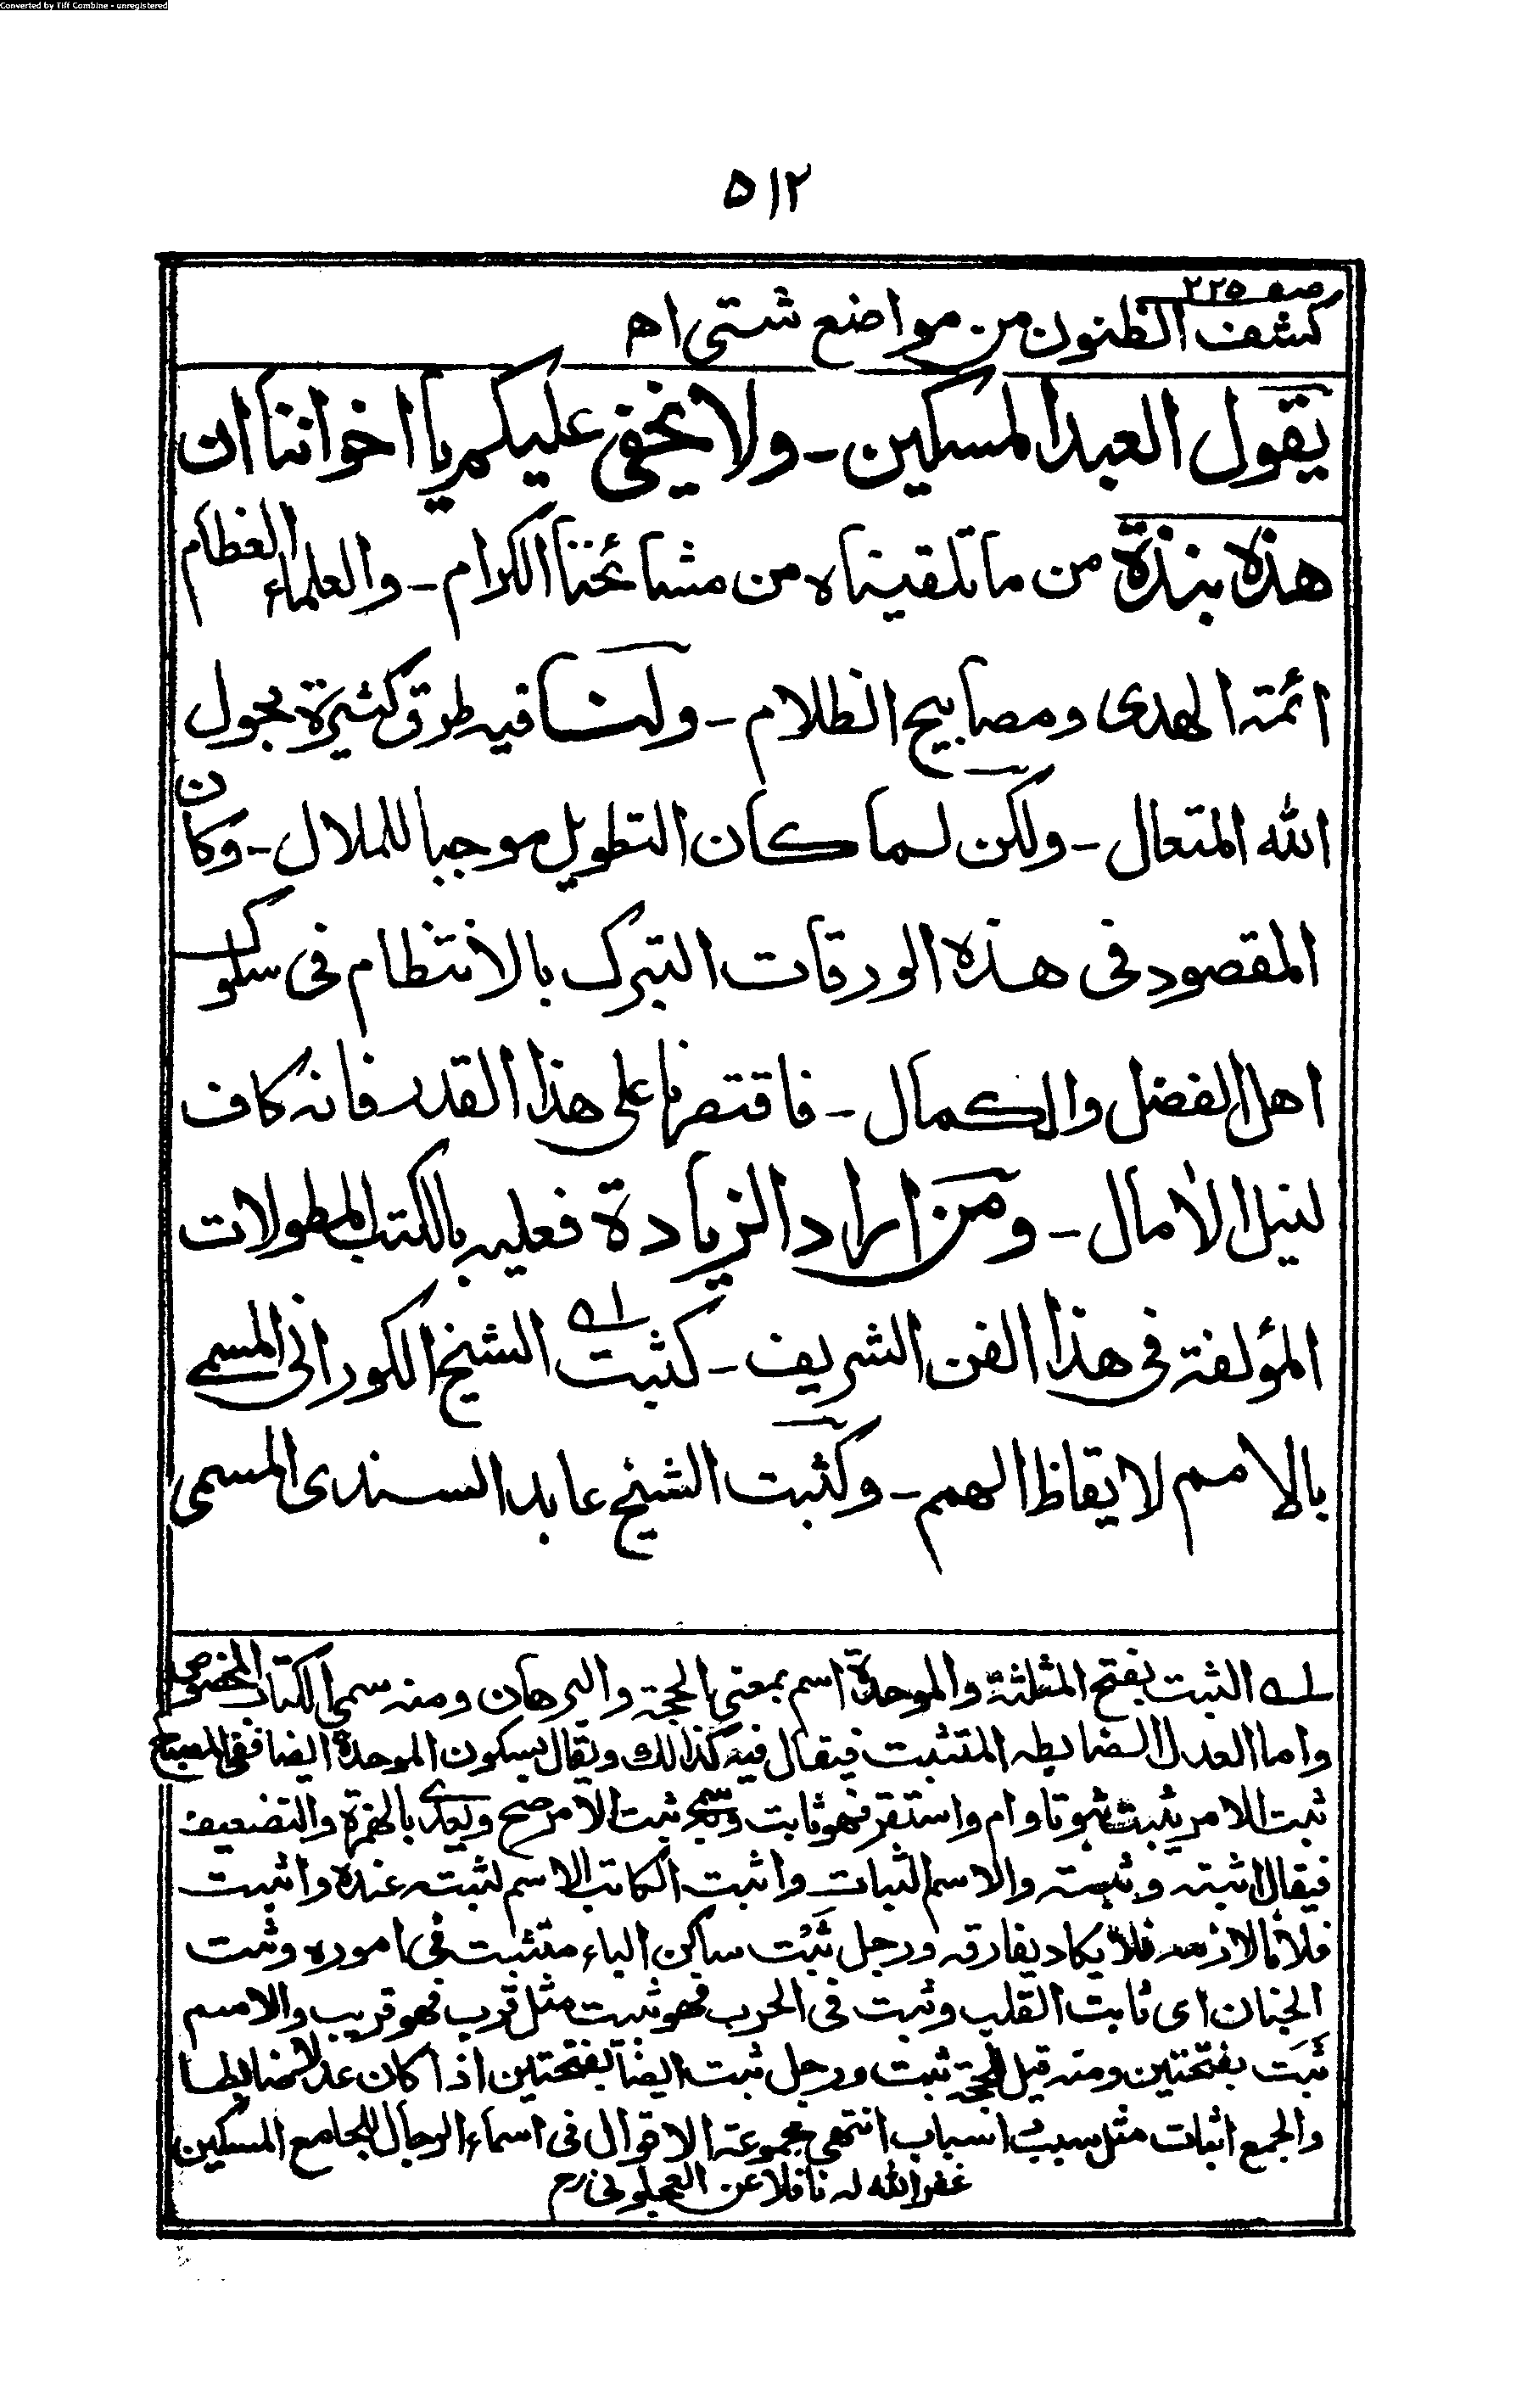 Converted by Tiff Combine - unregistered
٥١٢
صـ ٢٢٥
كشف الظنون من مواضع شتى اه
يقول العبد المسكين - ولا يخفى عليكم يا اخواننا ان
هذه بنذة من ما تلقيناه من مشائخنا الكرام - والعلماء العظام
ائمة الهدى ومصابيح الظلام - ولنا فيه طرق كثيرة بحول
الله المتعال - ولكن لما كان التطويل موجبا للملال - وكان
المقصود فى هذه الورقات التبرك بالانتظام فى سلوك
اهل الفضل والكمال - فاقتصرنا على هذا القدر فانه كاف
لنيل الأمال - ومن اراد الزيادة فعليه بالكتب المطولات
المؤلفة فى هذا الفن الشريف - كثبت الشيخ الكورانى المسمى
بالامم لايقاظ الهمم - وكثبت الشيخ عابد السندى المسمى
لـه الثبت بفتح المثلثة والموحدة اسم بمعنى الحجة والبرهان ومنه سمى الكتاب المخصوص
واما العدل الضابطه المتثبت فيقال فيه كذالك ويقال بسكون الموحدة ايضا ففى المصباح
ثبت الامر يثبت ثبوتا دام واستقر فهو ثابت وثبت الامر صح ويعدى بالهمزة والتضعيف
فيقال اثبته وثبته والاسم الثبات واثبت الكاتب الاسم لثبته عنده واثبت
فلانا لازمه فلا يكاد يفارقه ورجل ثَبْت ساكن الباء متثبت فى اموره وثبت
الجنان اى ثابت القلب وثبت فى الحرب فهو ثبيت مثل قرب فهو قريب والاسم
ثبت بفتحتين ومنه قيل للحجة ثبت ورجل ثبت ايضا بفتحتين اذا كان عدلا ضابطا
والجمع اثبات مثل سبب اسباب انتهى مجموعة الاقوال فى اسماء الرجال للجامع المسكين
غفر الله له نافلا عن العجلونى رح